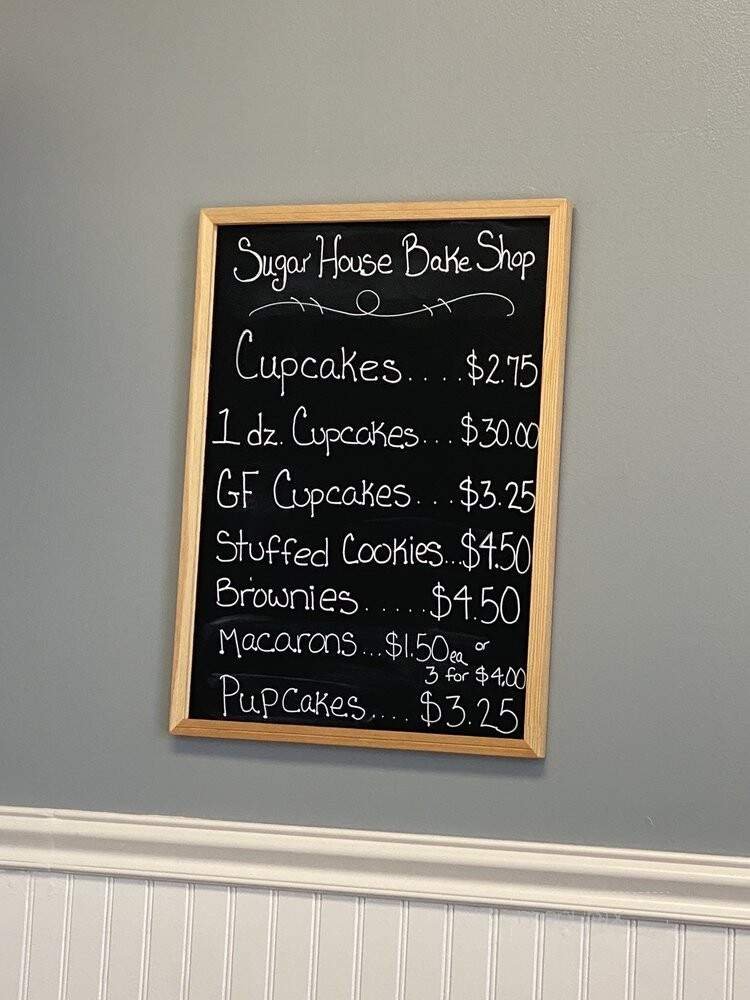 Sugar House Bake Shop
Cupcakes....$2.75
1 dz. Cupcakes...$30.00
GF Cupcakes...$3.25
Stuffed Cookies...$4.50
Brownies.....$4.50
Macarons...$1.50 ea or
3 for $4.00
Pupcakes....$3.25